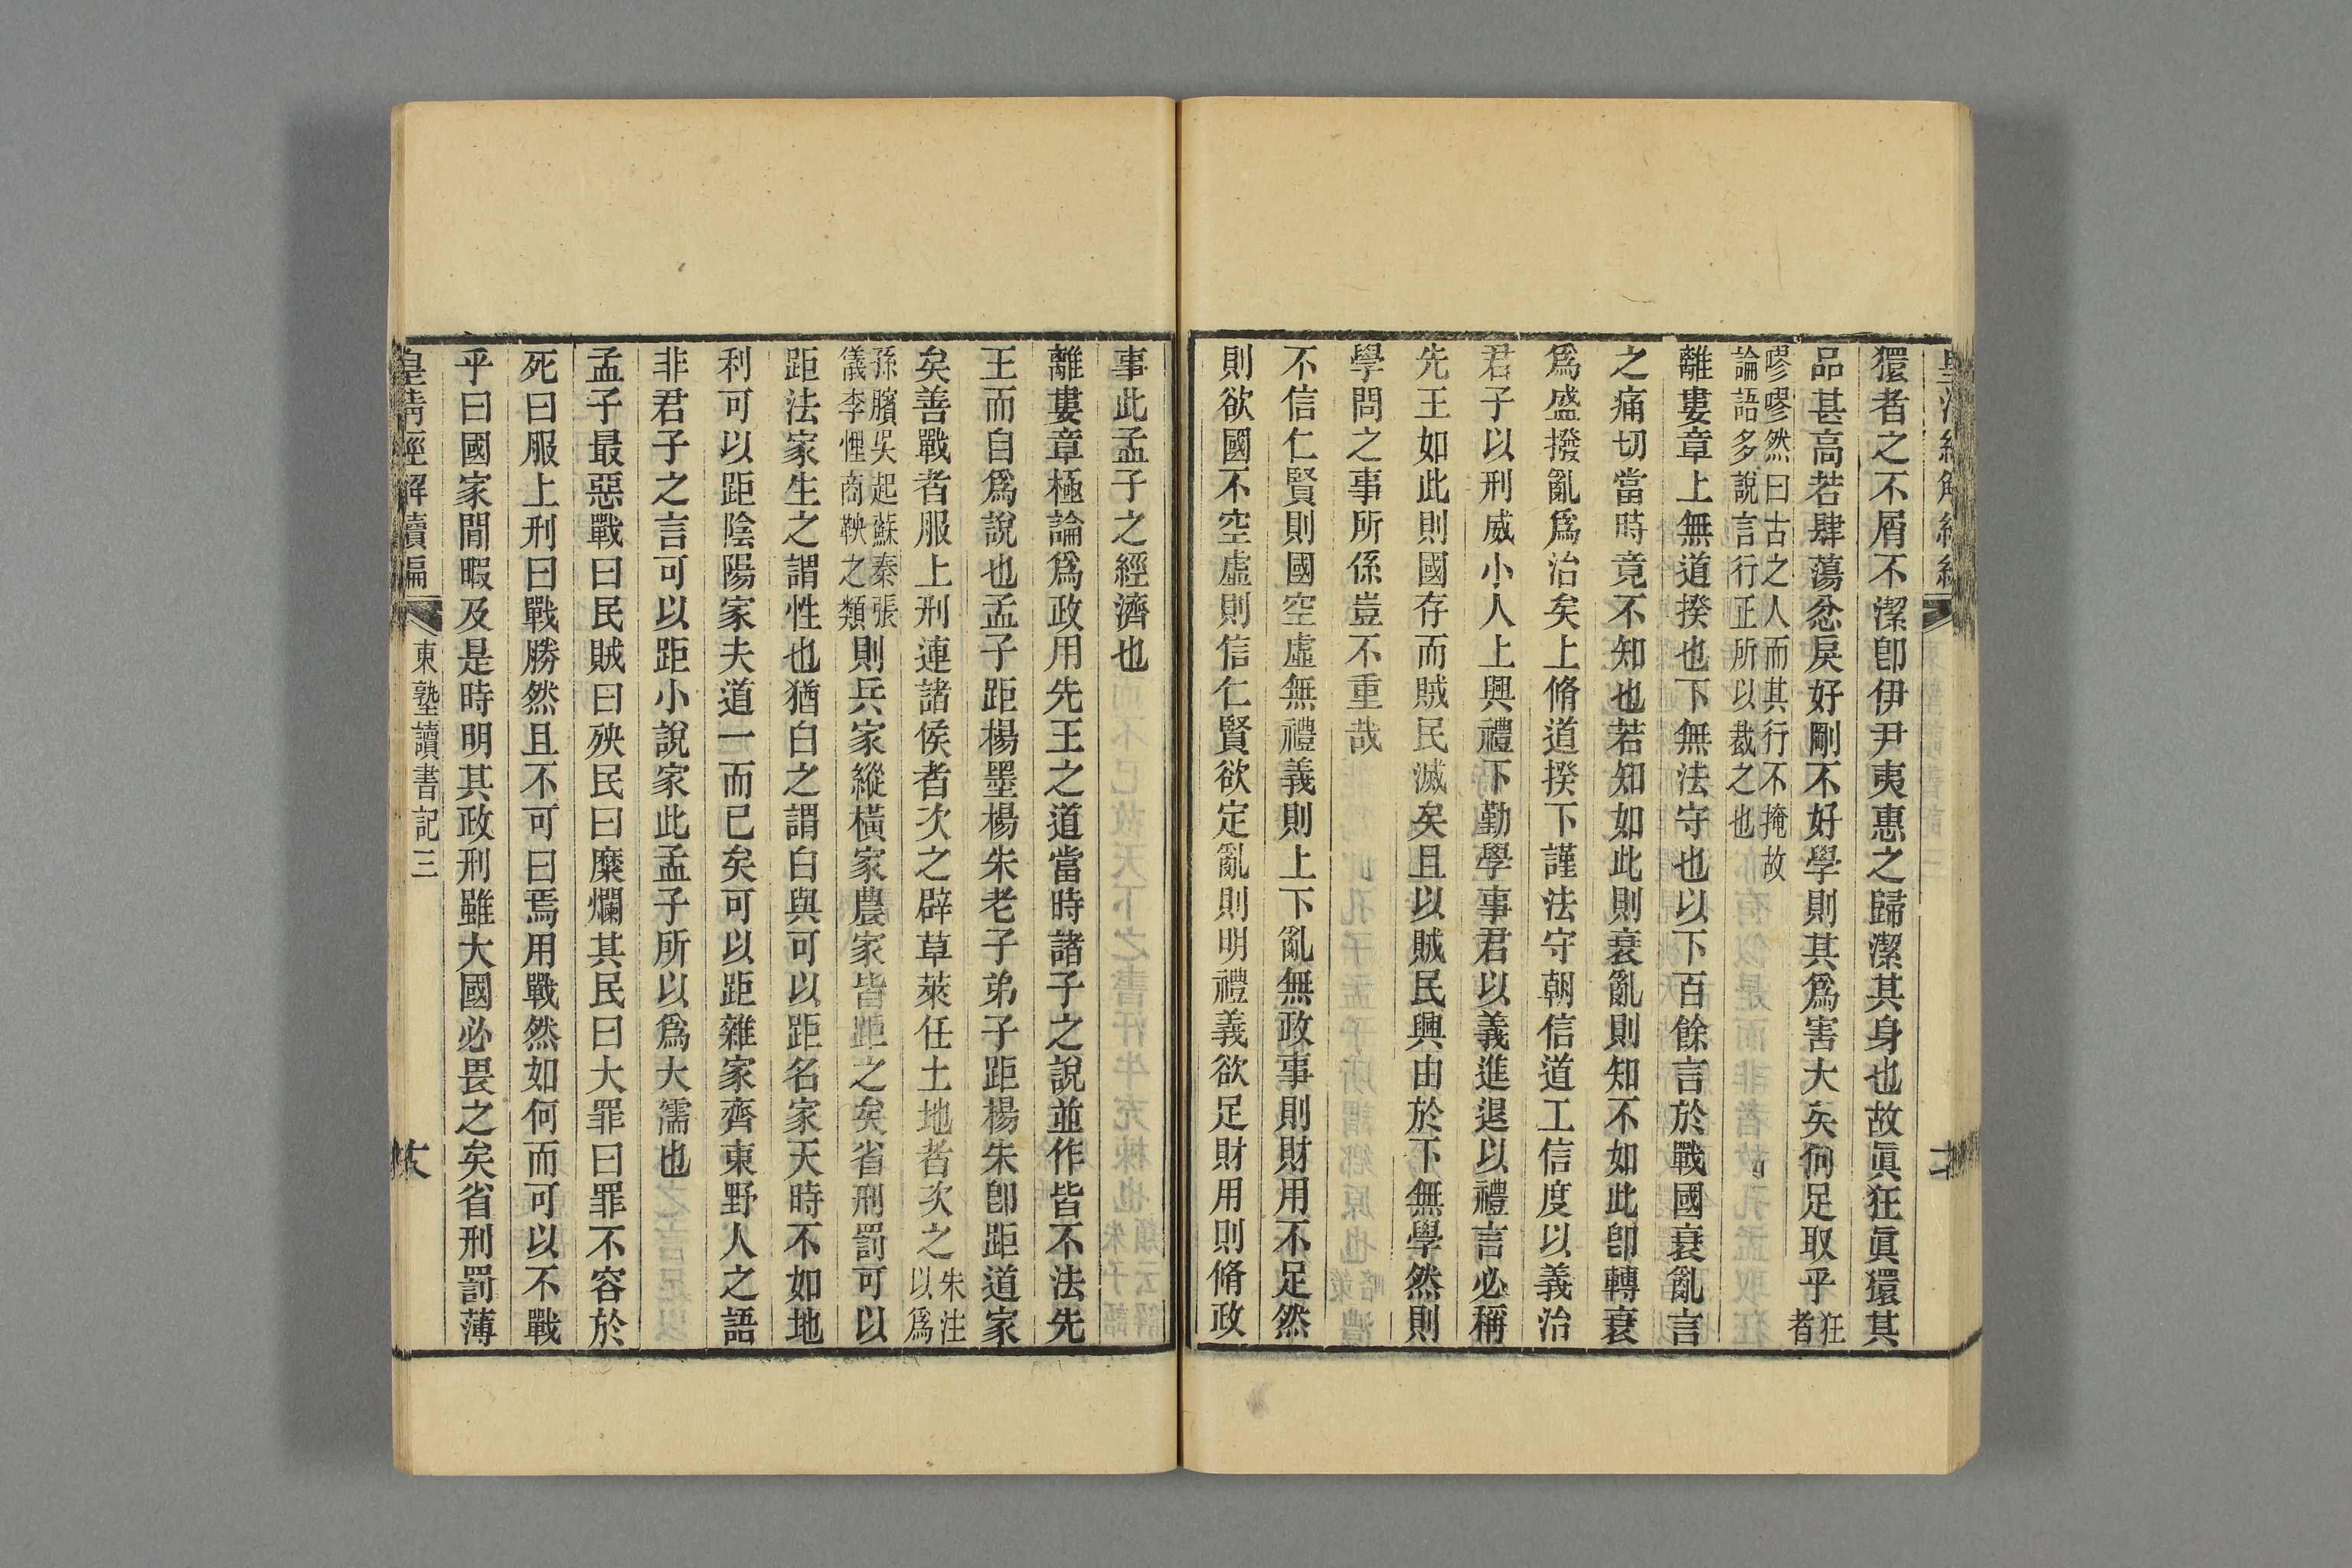 獧者之不屑不潔卽伊尹夷惠之歸潔其身也故眞狂眞獧其
品甚高若肆蕩忿戾好剛不好學則其爲害大矣何足取乎狂者
嘐嘐然曰古之人而其行不掩故
論語多說言行正所以裁之也
離婁章上無道揆也下無法守也以下百餘言於戰國衰亂言
之痛切當時竟不知也若知如此則衰亂則知不如此卽轉衰
爲盛撥亂爲治矣上脩道揆下謹法守朝信道工信度以義治
君子以刑威小人上興禮下勤學事君以義進退以禮言必稱
先王如此則國存而賊民滅矣且以賊民興由於下無學然則
學問之事所係豈不重哉
不信仁賢則國空虛無禮義則上下亂無政事則財用不足然
則欲國不空虛則信仁賢欲定亂則明禮義欲足財用則脩政
事此孟子之經濟也
離婁章極論爲政用先王之道當時諸子之說並作皆不法先
王而自爲說也孟子距楊墨楊朱老子弟子距楊朱卽距道家
矣善戰者服上刑連諸侯者次之辟草萊任土地者次之朱注以爲
孫臏吳起蘇秦張
儀李悝商鞅之類則兵家縱橫家農家皆距之矣省刑罰可以
距法家生之謂性也猶白之謂白與可以距名家天時不如地
利可以距陰陽家夫道一而已矣可以距雜家齊東野人之語
非君子之言可以距小說家此孟子所以爲大儒也
孟子最惡戰曰民賊曰殃民曰糜爛其民曰大罪曰罪不容於
死曰服上刑曰戰勝然且不可曰焉用戰然如何而可以不戰
乎曰國家閒暇及是時明其政刑雖大國必畏之矣省刑罰薄
皇清經解續編
東塾讀書記三